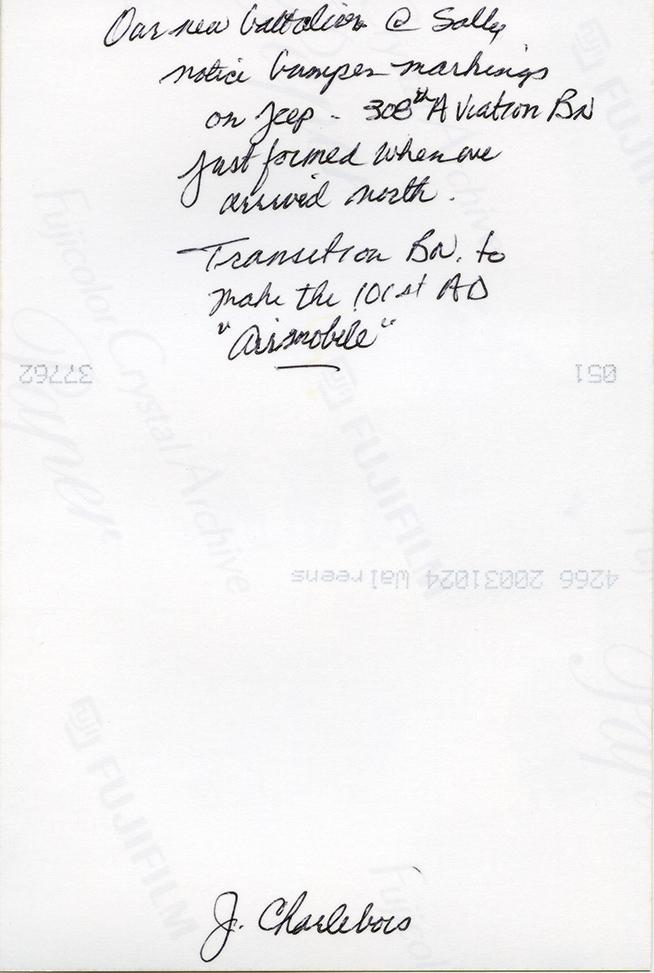 Our new battalion @ Sally
notice bumper markings
on jeep - 308th Aviation BN
just formed when we
arrived north.
Transition BN. to
make the 101st AD
"Airmobile"
37762
051
FUJIFILM
Fujicolor Crystal Archive
Paper
4266 20031024 Walgreens
FUJIFILM
J. Charlebois